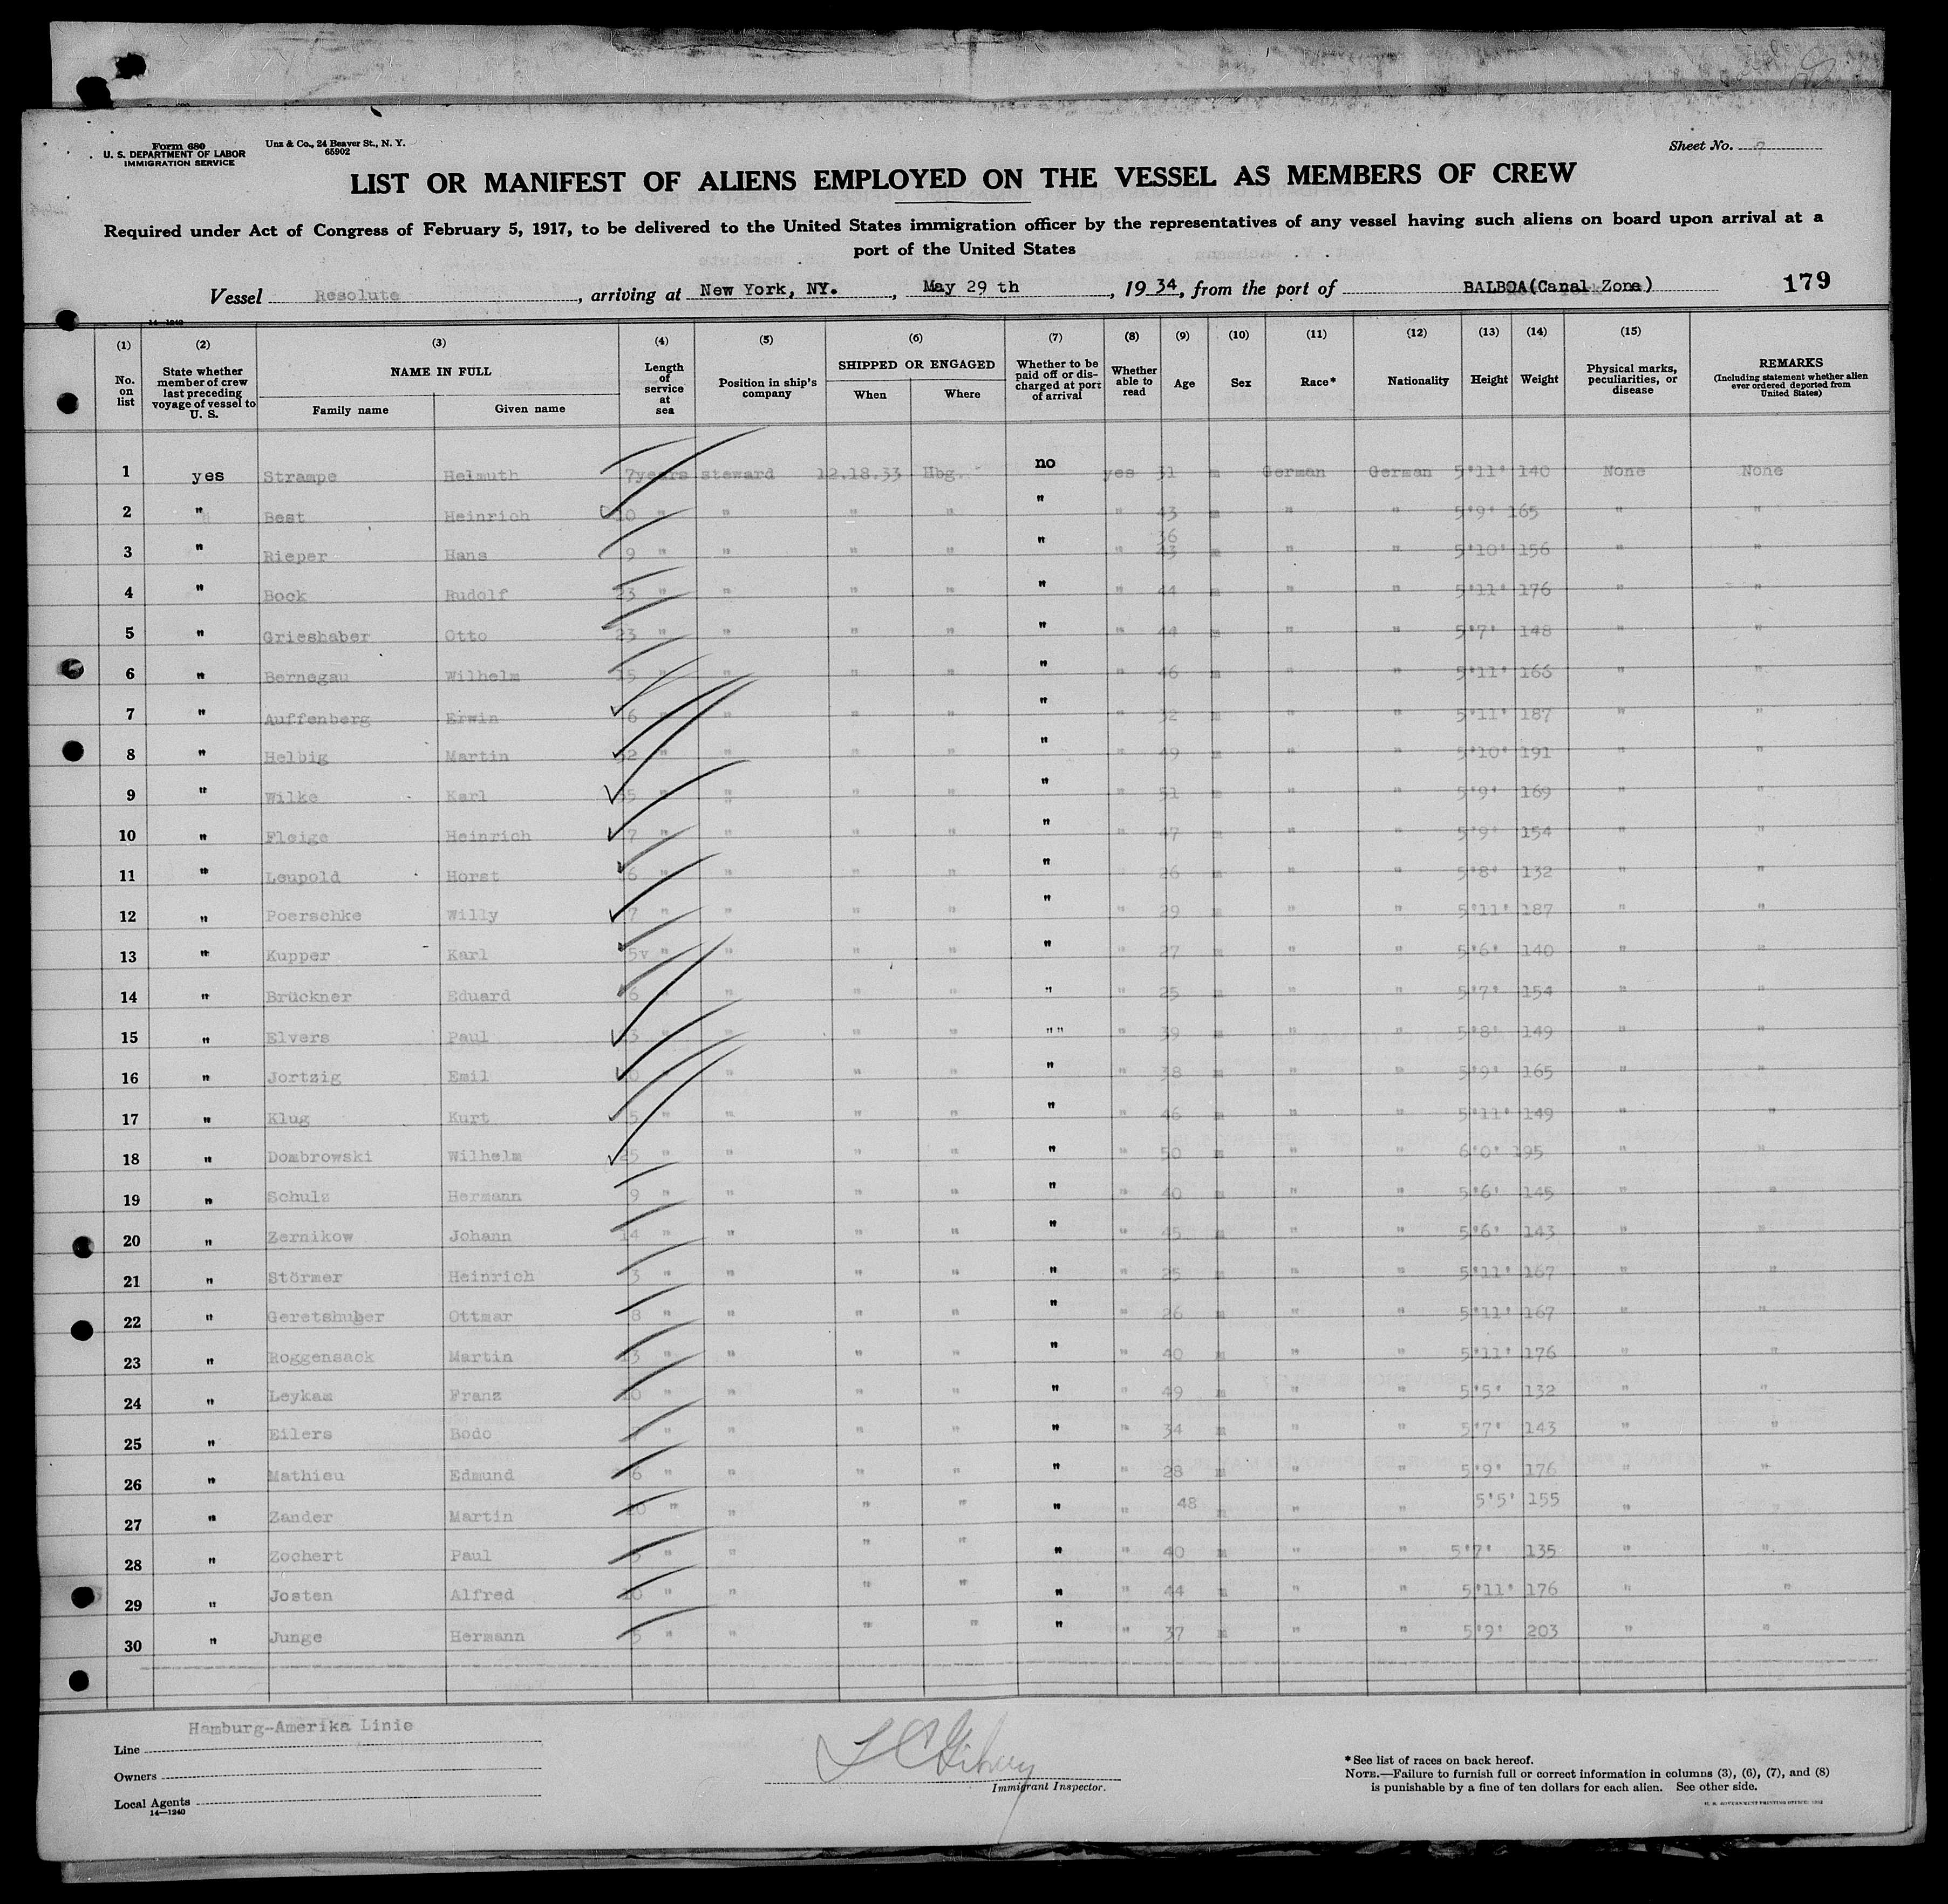 Form 680
U. S. DEPARTMENT OF LABOR
IMMIGRATION SERVICE
Unz & Co., 24 Beaver St., N. Y.
65902
Sheet No.
LIST OR MANIFEST OF ALIENS EMPLOYED ON THE VESSEL AS MEMBERS OF CREW
Required under Act of Congress of February 5, 1917, to be delivered to the United States immigration officer by the representatives of any vessel having such aliens on board upon arrival at a
port of the United States
Vessel Resolute, arriving at New York, NY., May 29 th, 1934, from the port of BALBOA(Canal Zone) 179
14—1240
(1) (2) (3) (4) (5) (6) (7) (8) (9) (10) (11) (12) (13) (14) (15)
No. on list
State whether member of crew last preceding voyage of vessel to U. S.
NAME IN FULL
Family name
Given name
Length of service at sea
Position in ship's company
SHIPPED OR ENGAGED
When
Where
Whether to be paid off or discharged at port of arrival
Whether able to read
Age
Sex
Race*
Nationality
Height
Weight
Physical marks, peculiarities, or disease
REMARKS
(Including statement whether alien ever ordered deported from United States)
1 yes Strampe Helmuth 7years steward 12.18.33 Hbg. no yes 31 m German German 5'11' 140 None None
2 " Best Heinrich " " " " " " 43 m " " 5'9' 165 " "
3 " Rieper Hans 9 " " " " " " 36 m " " 5'10' 156 " "
4 " Bock Rudolf 23 " " " " " " 44 m " " 5'11' 176 " "
5 " Grieshaber Otto 23 " " " " " " 44 m " " 5'7' 148 " "
6 " Bernegau Wilhelm 15 " " " " " " 46 m " " 5'11' 166 " "
7 " Auffenberg Erwin 6 " " " " " " 32 m " " 5'11' 187 " "
8 " Helbig Martin " " " " " " 49 m " " 5'10' 191 " "
9 " Wilke Karl " " " " " " 51 m " " 5'9' 169 " "
10 " Fleige Heinrich 7 " " " " " " 47 m " " 5'9' 154 " "
11 " Leupold Horst 6 " " " " " " 26 m " " 5'8' 132 " "
12 " Poerschke Willy 7 " " " " " " 29 m " " 5'11' 187 " "
13 " Kupper Karl 5v " " " " " " 27 m " " 5'6' 140 " "
14 " Brückner Eduard 6 " " " " " " 25 m " " 5'7' 154 " "
15 " Elvers Paul " " " " "" " 39 m " " 5'8' 149 " "
16 " Jortzig Emil " " " " " " 38 m " " 5'9' 165 " "
17 " Klug Kurt 5 " " " " " " 46 m " " 5'11' 149 " "
18 " Dombrowski Wilhelm 25 " " " " " " 50 m " " 6'0' 195 " "
19 " Schulz Hermann 9 " " " " " " 40 m " " 5'6' 145 " "
20 " Zernikow Johann 14 " " " " " " 45 m " " 5'6' 143 " "
21 " Störmer Heinrich 3 " " " " " " 25 m " " 5'11' 167 " "
22 " Geretshuber Ottmar 8 " " " " " " 26 m " " 5'11' 167 " "
23 " Roggensack Martin 13 " " " " " " 40 m " " 5'11' 176 " "
24 " Leykam Franz " " " " " " 49 m " " 5'5' 132 " "
25 " Eilers Bodo " " " " " " 34 m " " 5'7' 143 " "
26 " Mathieu Edmund 6 " " " " " " 28 m " " 5'9' 176 " "
27 " Zander Martin " " " " " " 48 m " " 5'5' 155 " "
28 " Zochert Paul " " " " " " 40 m " " 5'7' 135 " "
29 " Josten Alfred " " " " " " 44 m " " 5'11' 176 " "
30 " Junge Hermann 5 " " " " " " 37 m " " 5'9' 203 " "
Line Hamburg-Amerika Linie
Owners
Local Agents
14—1240
Immigrant Inspector.
*See list of races on back hereof.
NOTE.—Failure to furnish full or correct information in columns (3), (6), (7), and (8)
is punishable by a fine of ten dollars for each alien. See other side.